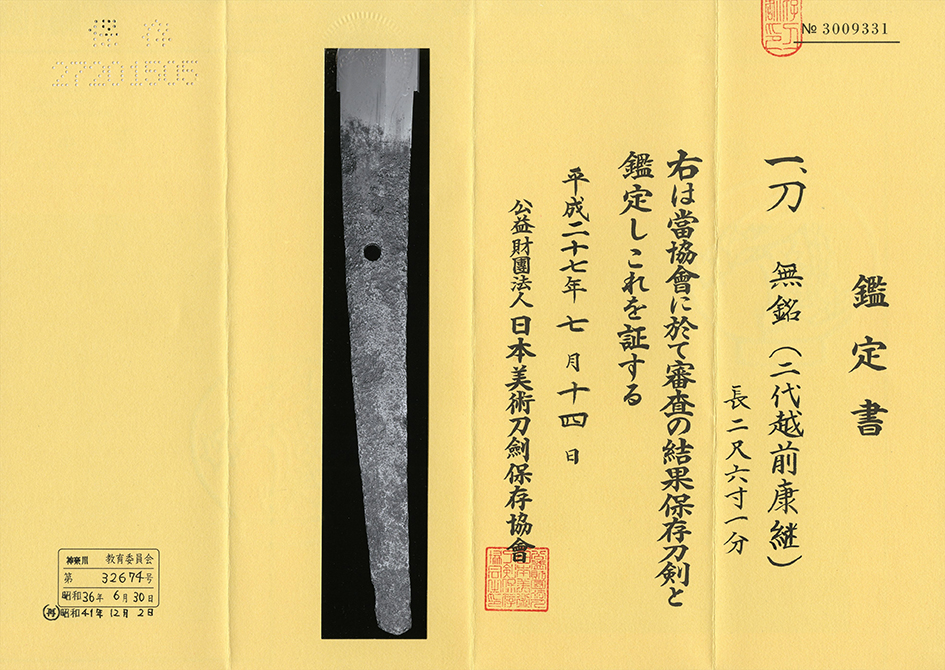 № 3009331
鑑定書
一、刀 無銘（二代越前康継）
長二尺六寸一分
右は當協會に於て審査の結果保存刀剣と
鑑定しこれを証する
平成二十七年七月十四日
公益財團法人日本美術刀劍保存協會
保存
27201505
神奈川 教育委員会
第 32674号
昭和36年 6月30日
再 昭和41年 12月 2日